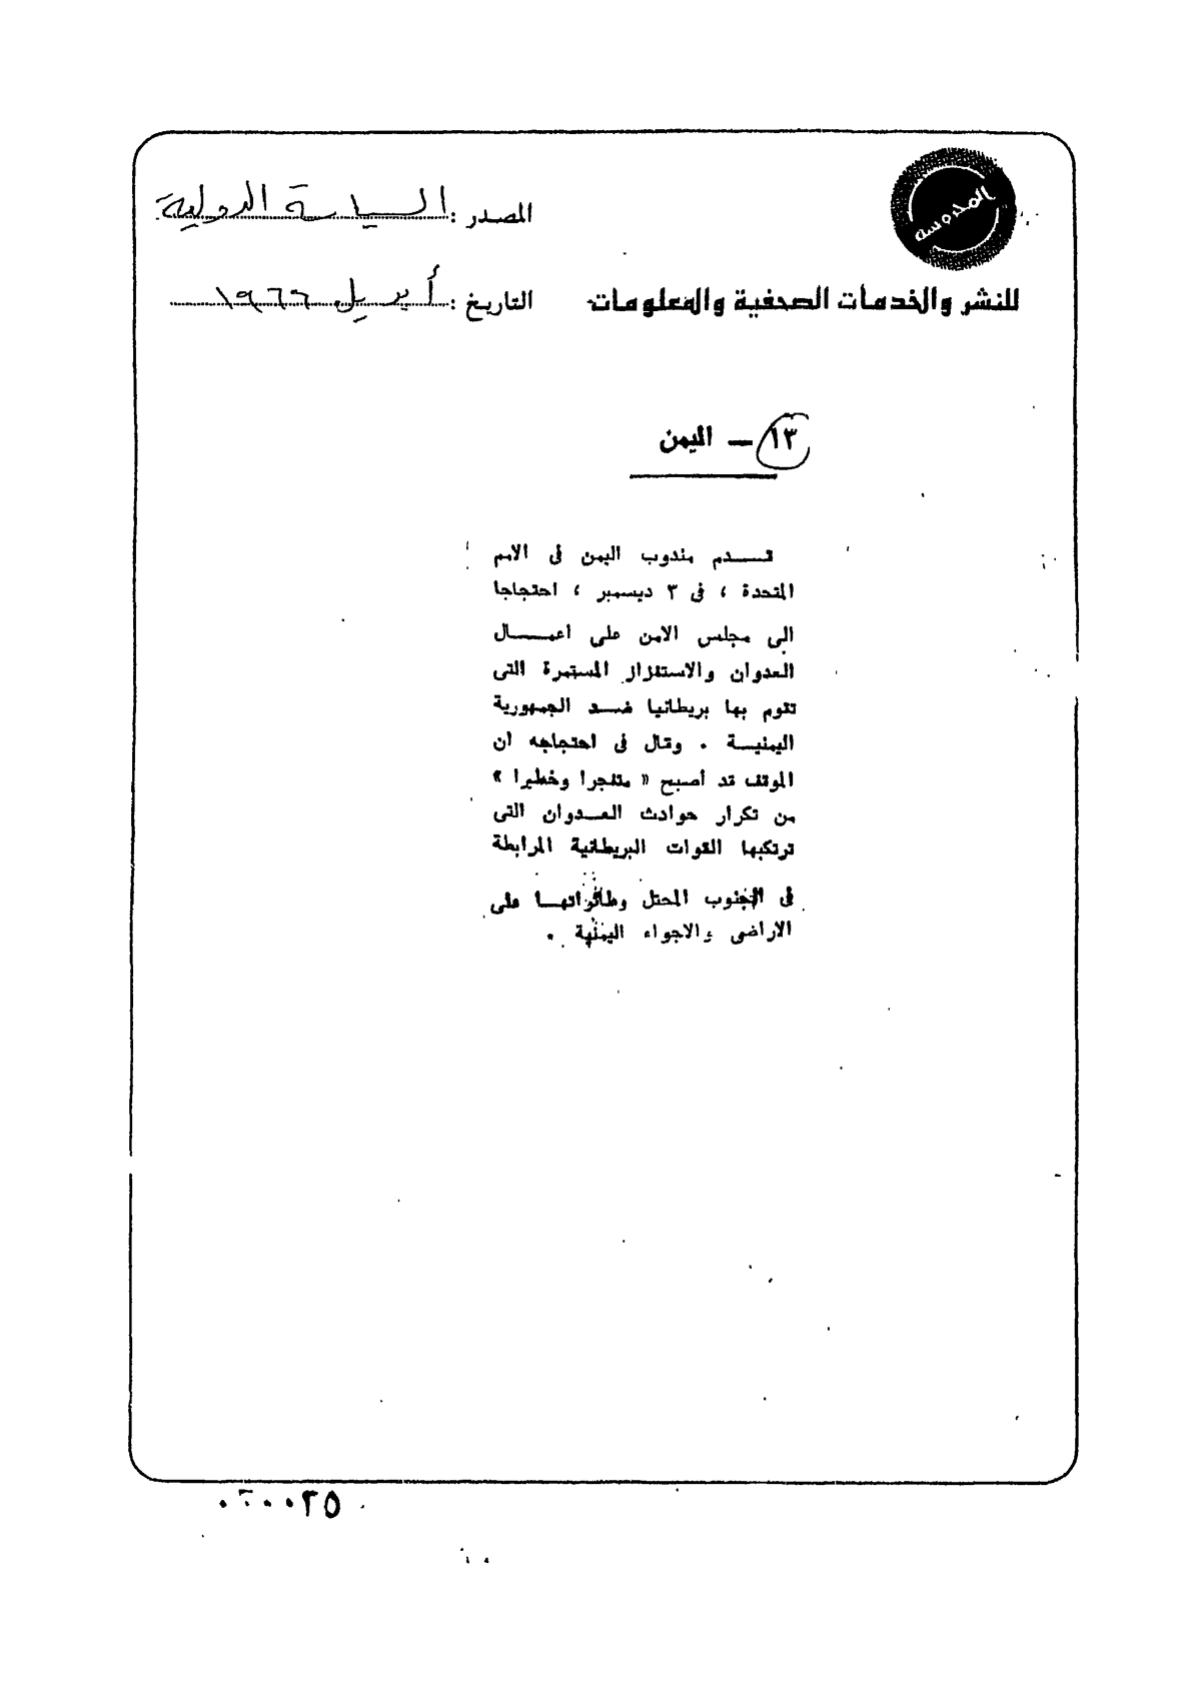 المحروسة
المصدر : السياسة الدولية
للنشر والخدمات الصحفية والمعلومات
التاريخ : أبريل ١٩٦٦
١٣ — اليمن
قـــدم مندوب اليمن فى الامم
المتحدة ، فى ٣ ديسمبر ، احتجاجا
الى مجلس الامن على اعمـــال
العدوان والاستفزاز المستمرة التى
تقوم بها بريطانيا ضـد الجمهورية
اليمنيـة . وقال فى احتجاجه ان
الموقف قد أصبح « متفجرا وخطيرا »
من تكرار حوادث العـدوان التى
ترتكبها القوات البريطانية المرابطة
فى الجنوب المحتل وطائراتهـا على
الاراضى والاجواء اليمنية .